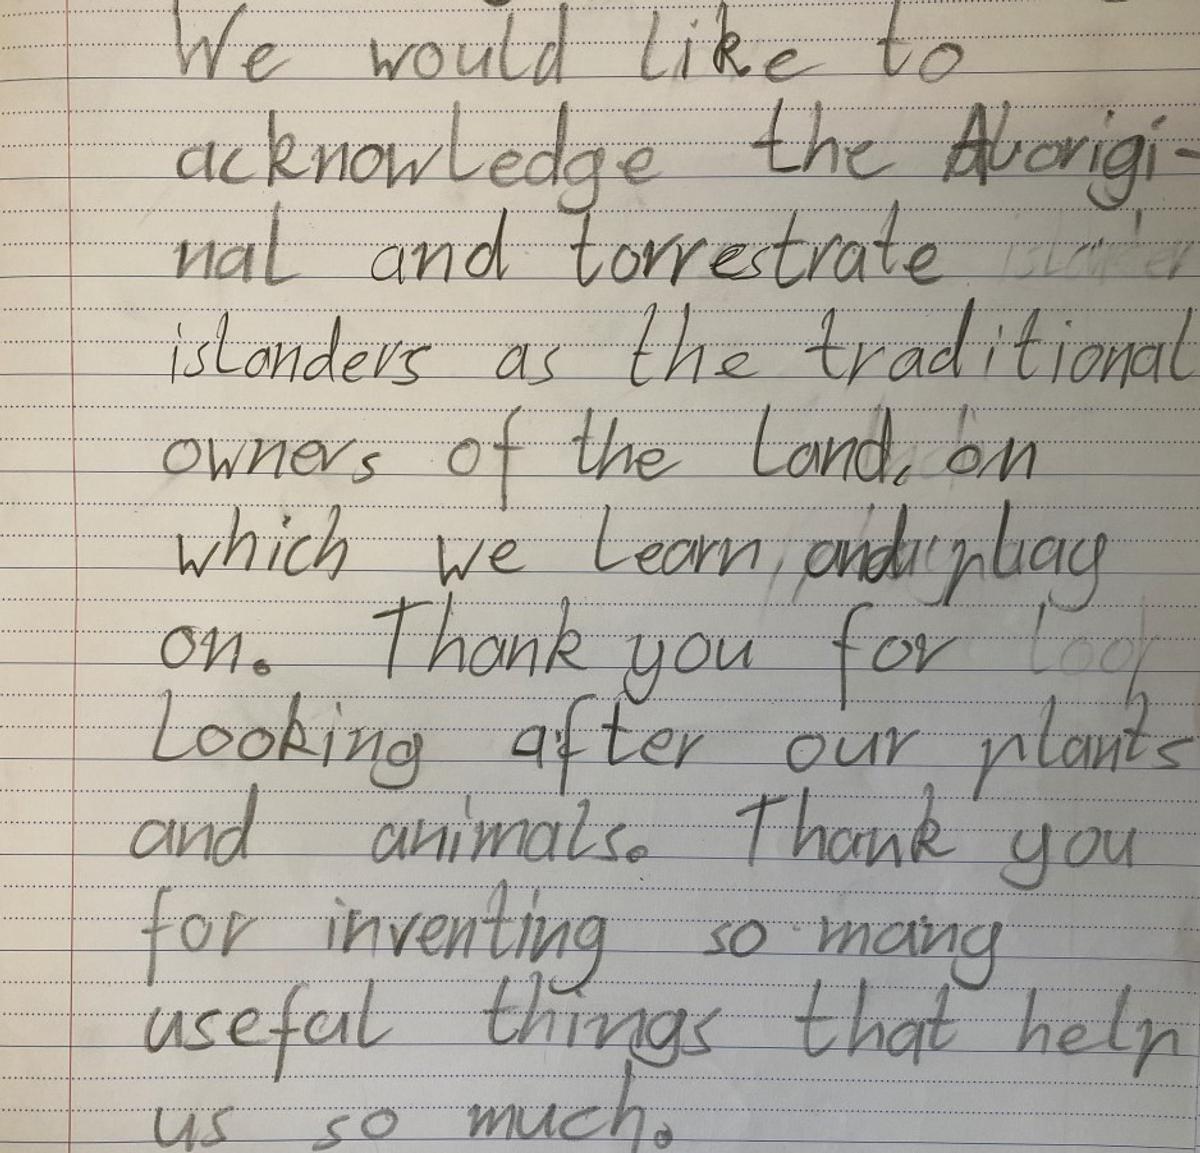 We would like to
acknowledge the Aborigi-
nal and torrestrate islander
islanders as the traditional
owners of the land, on
which we learn, and play
on. Thank you for loo
Looking after our plants
and animals. Thank you
for inventing so many
useful things that help
us so much.